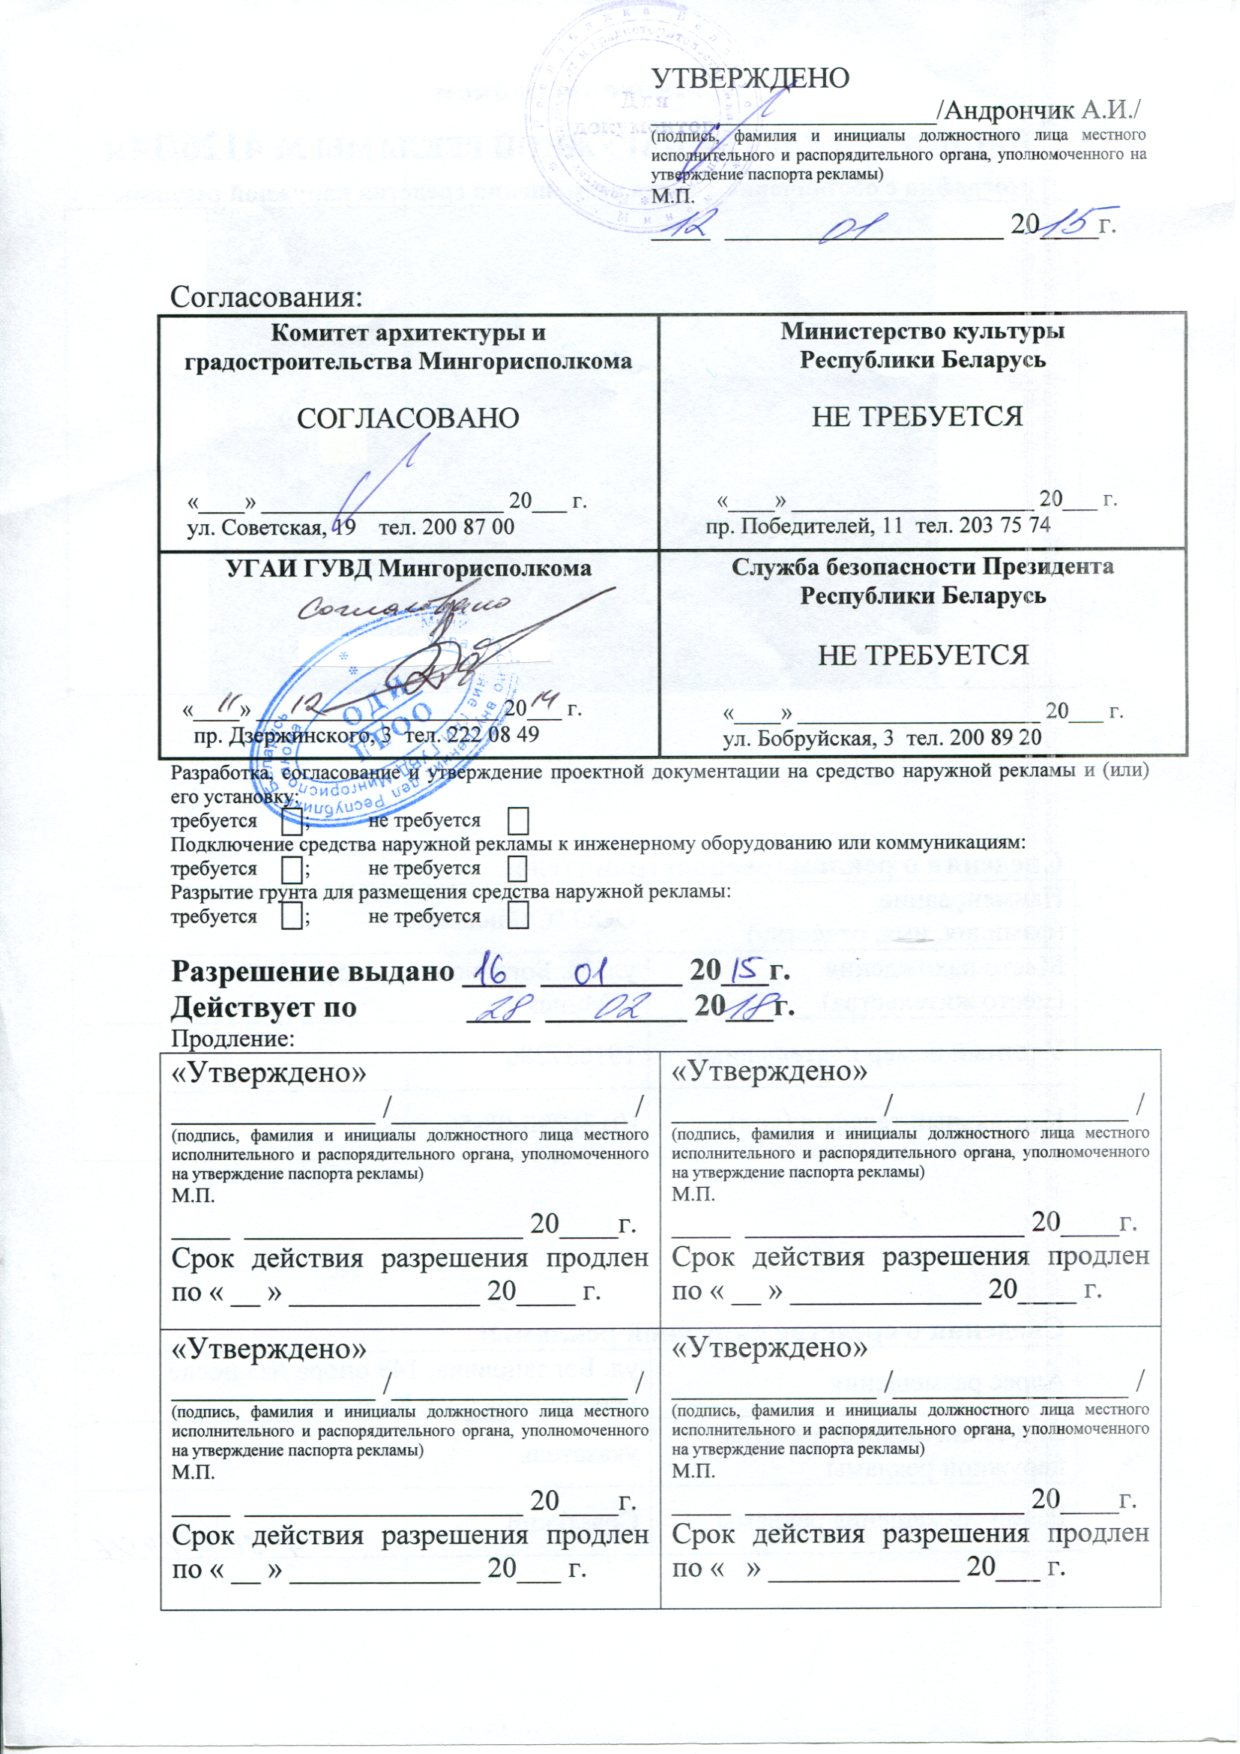 УТВЕРЖДЕНО
____________________/Андрончик А.И./
(подпись, фамилия и инициалы должностного лица местного
исполнительного и распорядительного органа, уполномоченного на
утверждение паспорта рекламы)
М.П.
12 01 2015г.
Согласования:
Комитет архитектуры и
градостроительства Мингорисполкома
СОГЛАСОВАНО
«____» ____________________ 20___ г.
ул. Советская, 19 тел. 200 87 00
Министерство культуры
Республики Беларусь
НЕ ТРЕБУЕТСЯ
«____» ____________________ 20___ г.
пр. Победителей, 11 тел. 203 75 74
УГАИ ГУВД Мингорисполкома
Согласовано
«11» 12 2014 г.
пр. Дзержинского, 3 тел. 222 08 49
ОДИ
Служба безопасности Президента
Республики Беларусь
НЕ ТРЕБУЕТСЯ
«____» ____________________ 20___ г.
ул. Бобруйская, 3 тел. 200 89 20
Разработка, согласование и утверждение проектной документации на средство наружной рекламы и (или)
его установку:
требуется ; не требуется
Подключение средства наружной рекламы к инженерному оборудованию или коммуникациям:
требуется ; не требуется
Разрытие грунта для размещения средства наружной рекламы:
требуется ; не требуется
Разрешение выдано 16 01 2015г.
Действует по 28 02 2018г.
Продление:
«Утверждено»
______________ /________________ /
(подпись, фамилия и инициалы должностного лица местного
исполнительного и распорядительного органа, уполномоченного
на утверждение паспорта рекламы)
М.П.
____ ___________________ 20____г.
Срок действия разрешения продлен
по « __ » _____________ 20____ г.
«Утверждено»
______________ /________________ /
(подпись, фамилия и инициалы должностного лица местного
исполнительного и распорядительного органа, уполномоченного
на утверждение паспорта рекламы)
М.П.
____ ___________________ 20____г.
Срок действия разрешения продлен
по « __ » _____________ 20____ г.
«Утверждено»
______________ /________________ /
(подпись, фамилия и инициалы должностного лица местного
исполнительного и распорядительного органа, уполномоченного
на утверждение паспорта рекламы)
М.П.
____ ___________________ 20____г.
Срок действия разрешения продлен
по « __ » _____________ 20___ г.
«Утверждено»
______________ /________________ /
(подпись, фамилия и инициалы должностного лица местного
исполнительного и распорядительного органа, уполномоченного
на утверждение паспорта рекламы)
М.П.
____ ___________________ 20____г.
Срок действия разрешения продлен
по « » _____________ 20___ г.